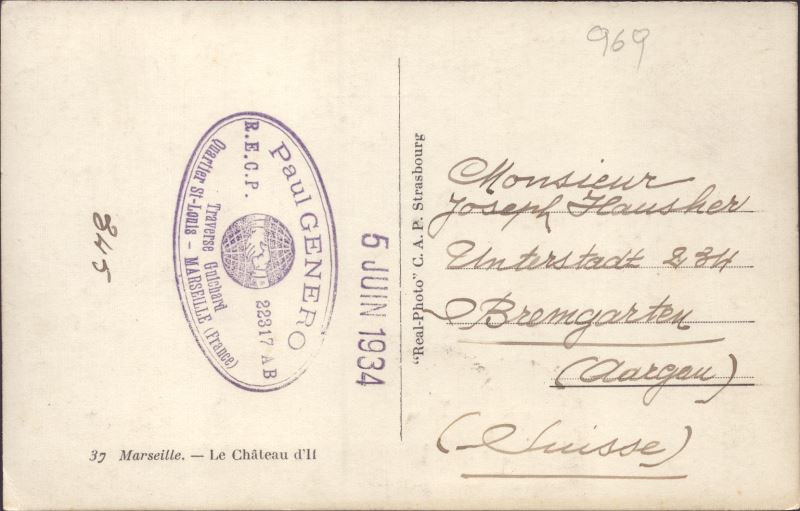 969
Paul GENERO
R.E.C.P.
22317 AB
Traverse Guichard
Quartier St-Louis - MARSEILLE (France)
5 JUIN 1934
345
37 Marseille. — Le Château d'If
"Real-Photo" C. A. P. Strasbourg
Monsieur
Joseph Hausher
Unterstadt 234
Bremgarten
(Aargau)
(Suisse)